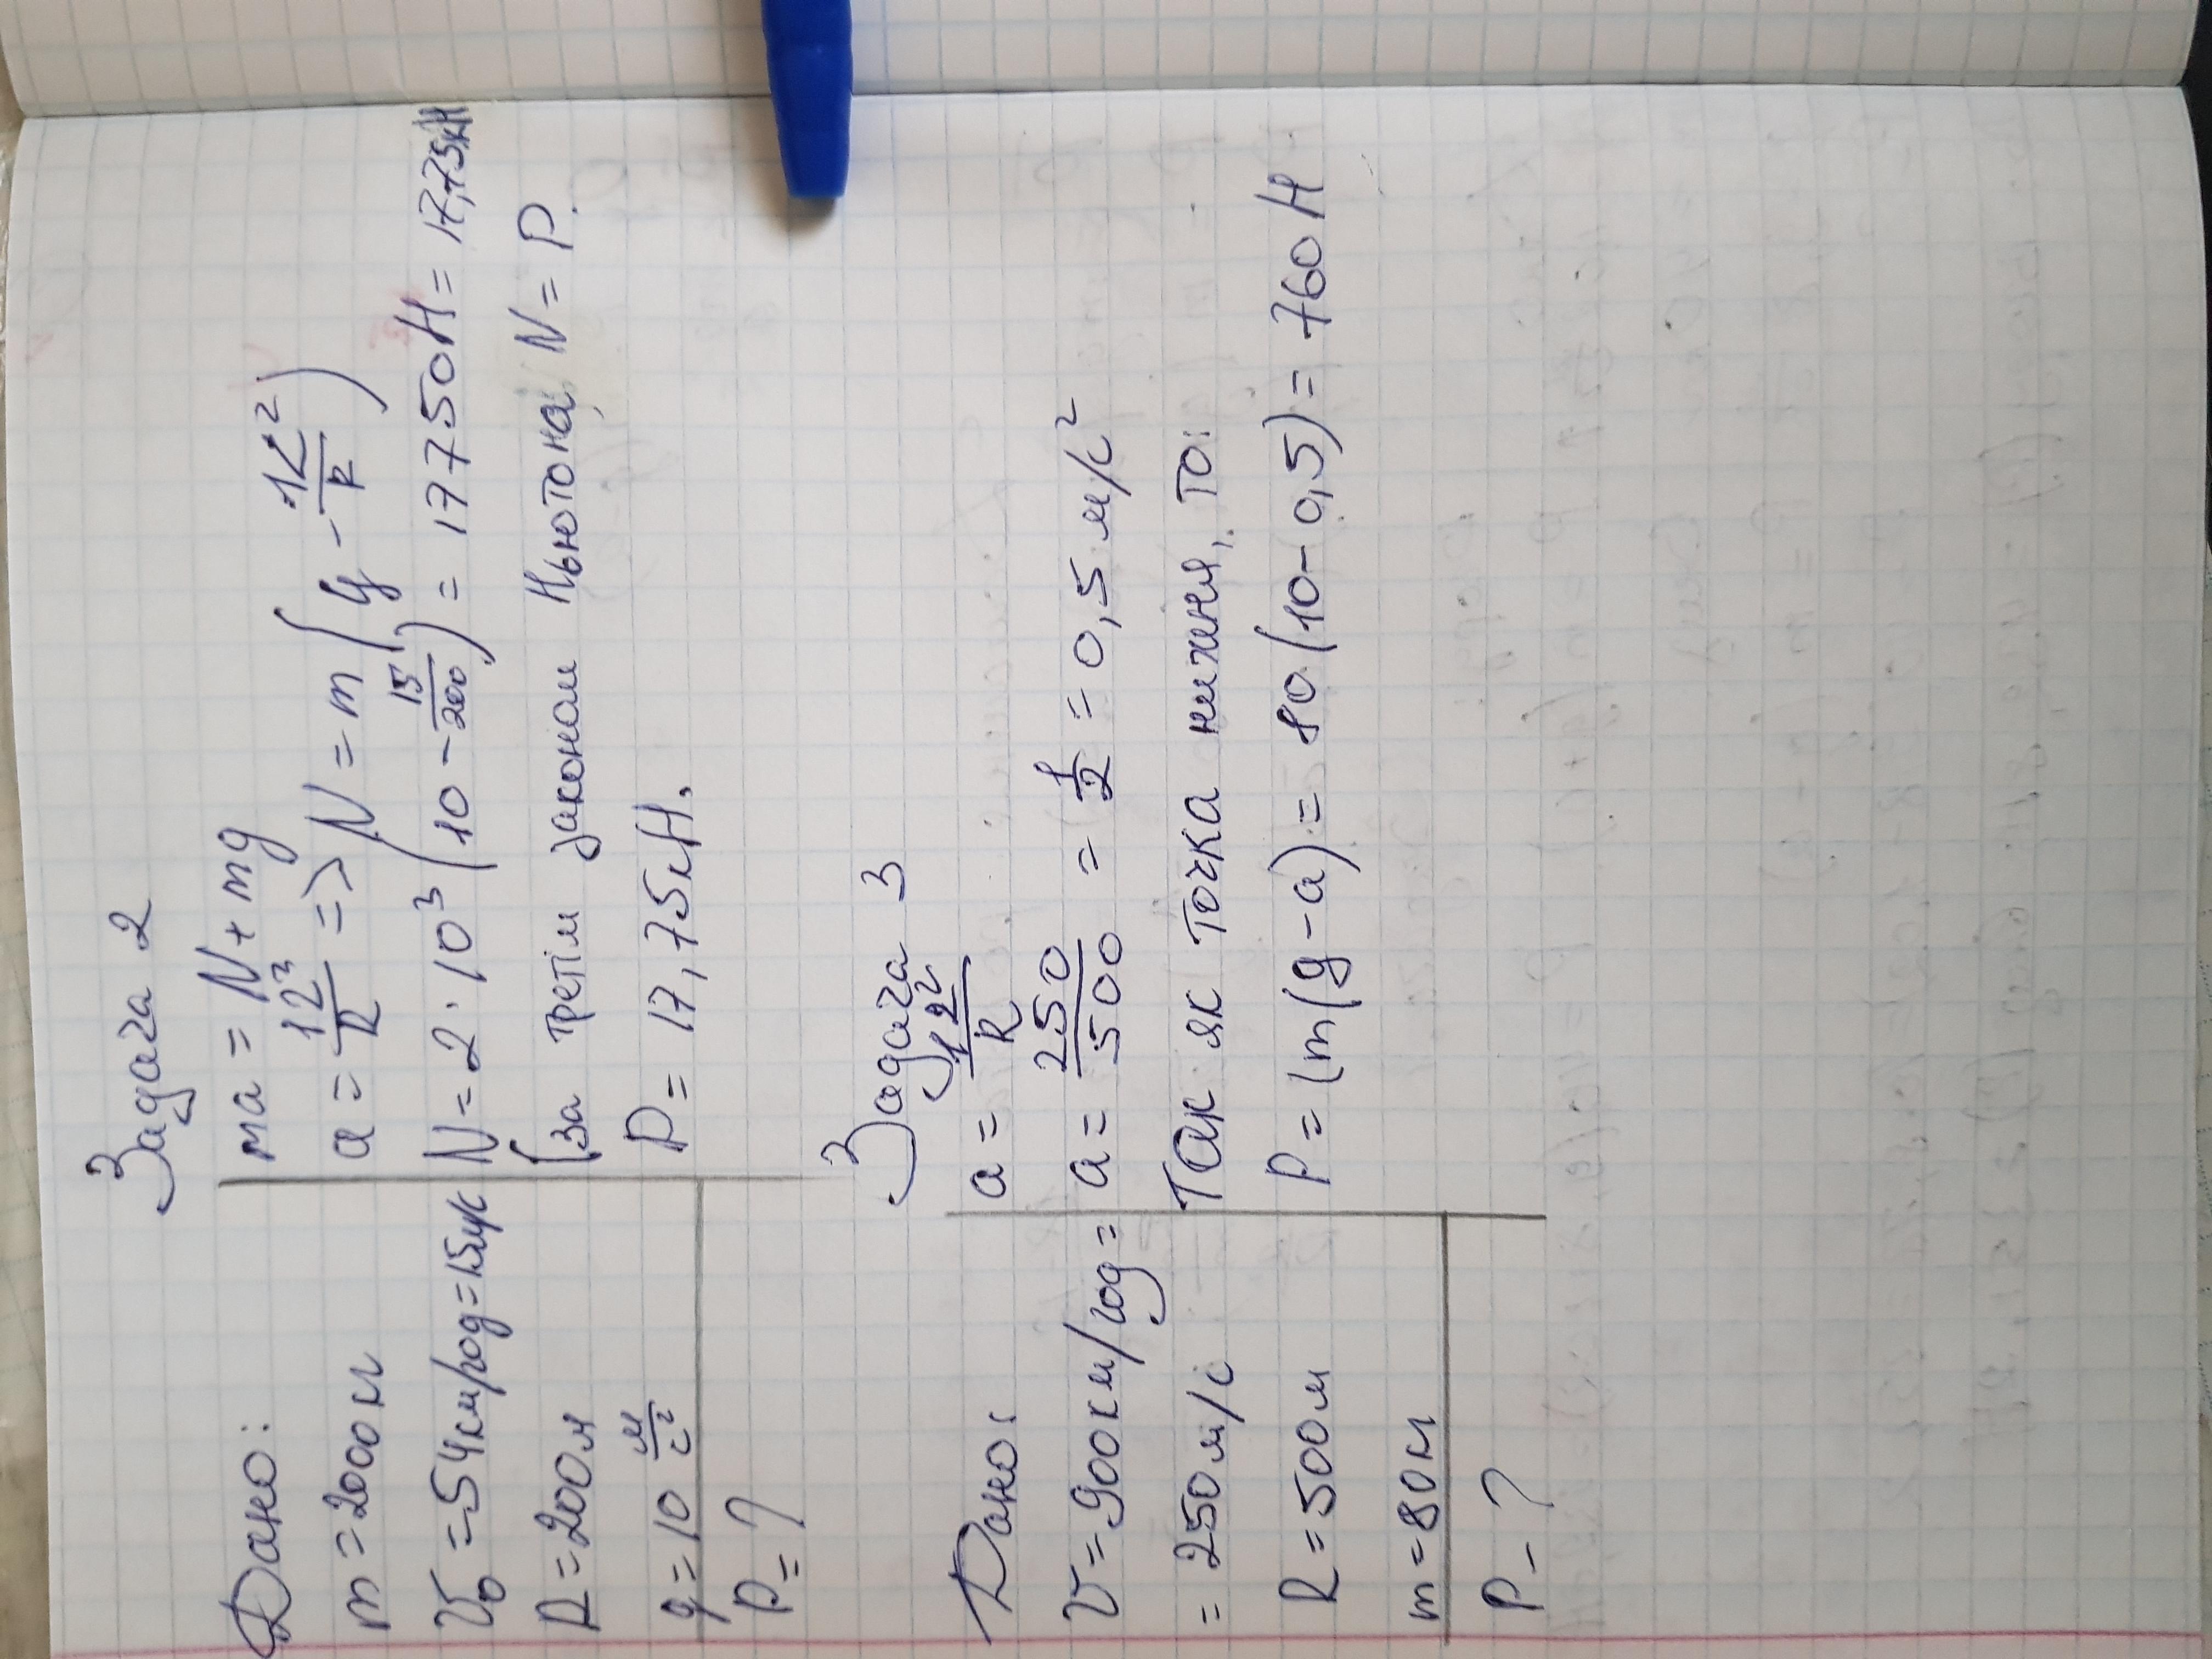 Задача 2
Дано:
m = 2000 кг
v₀ = 54 км/год = 15 м/с
R = 200 м
g = 10 м/с²
P = ?
ma = N + mg
a = v²/R => N = m(g - v²/R)
N = 2 · 10³ (10 - 15/200) = 17750 Н = 17,75 кН
(за третім законом Ньютона, N = P.
P = 17,75 кН.
Задача 3
Дано:
v = 900 км/год =
= 250 м/с
R = 500 м
m = 80 кг
P - ?
a = v²/R
a = 250/500 = 1/2 = 0,5 м/с²
Так як точка нижня, то:
P = (m(g - a) = 80 (10 - 0,5) = 760 Н